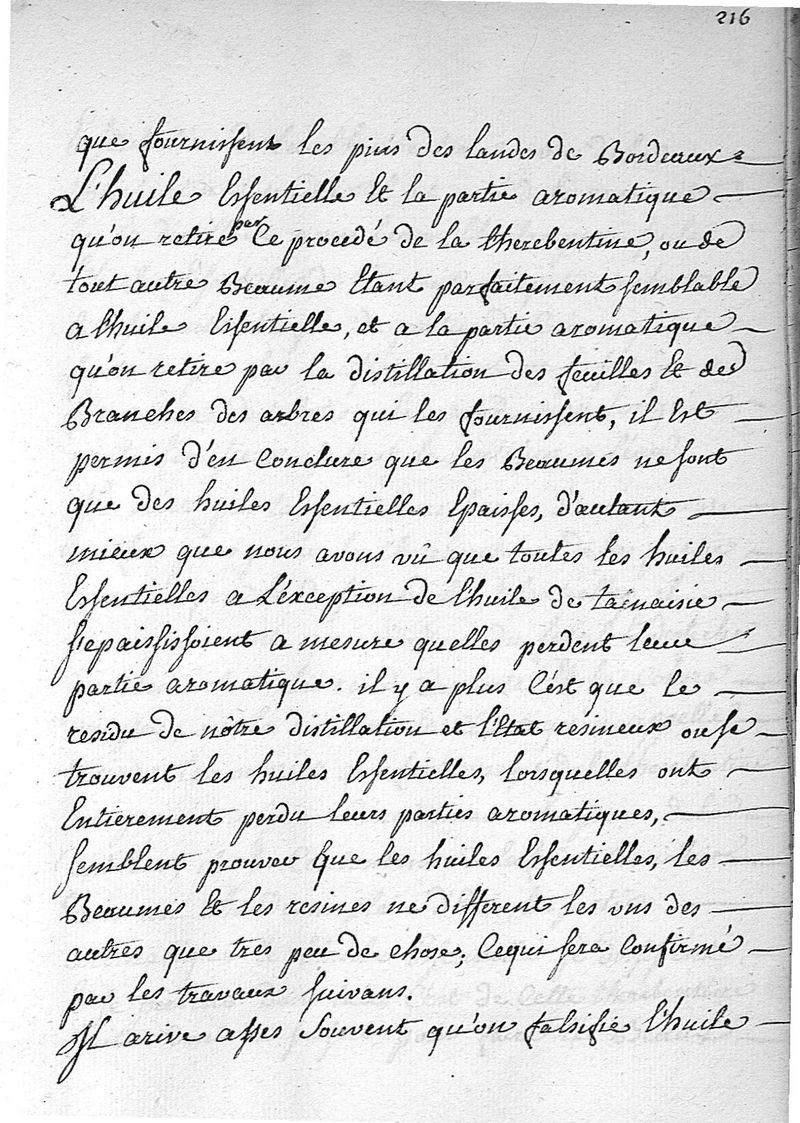 216
que fournissent les pins des landes de Bordeaux.
L'huile Essentielle Et la partie aromatique
qu'on retire par Ce procedé de la therebentine, ou de
tout autre Beaume Etant parfaitement semblable
a l'huile Essentielle, et a la partie aromatique
qu'on retire par la distillation des feuilles Et des
Branches des arbres qui les fournissent, il Est
permis d'en Conclure que les Beaumes ne sont
que des huiles Essentielles Epaisses, d'autant
mieux que nous avons vû que toutes les huiles
Essentielles a L'éxception de l'huile de tainaisie
s'epaississoient a mesure quelles perdent leur
partie aromatique. il y a plus C'est que le
residu de nôtre distillation et l'Etat resineux ou se
trouvent les huiles Essentielles, lorsquelles ont
Entierement perdu leurs parties aromatiques,
semblent prouver que les huiles Essentielles, les
Beaumes Et les resines ne different les uns des
autres que tres peu de chose; Cequi sera Confirmé
par les travaux suivans.
Il arive asses Souvent qu'on falsifie l'huile